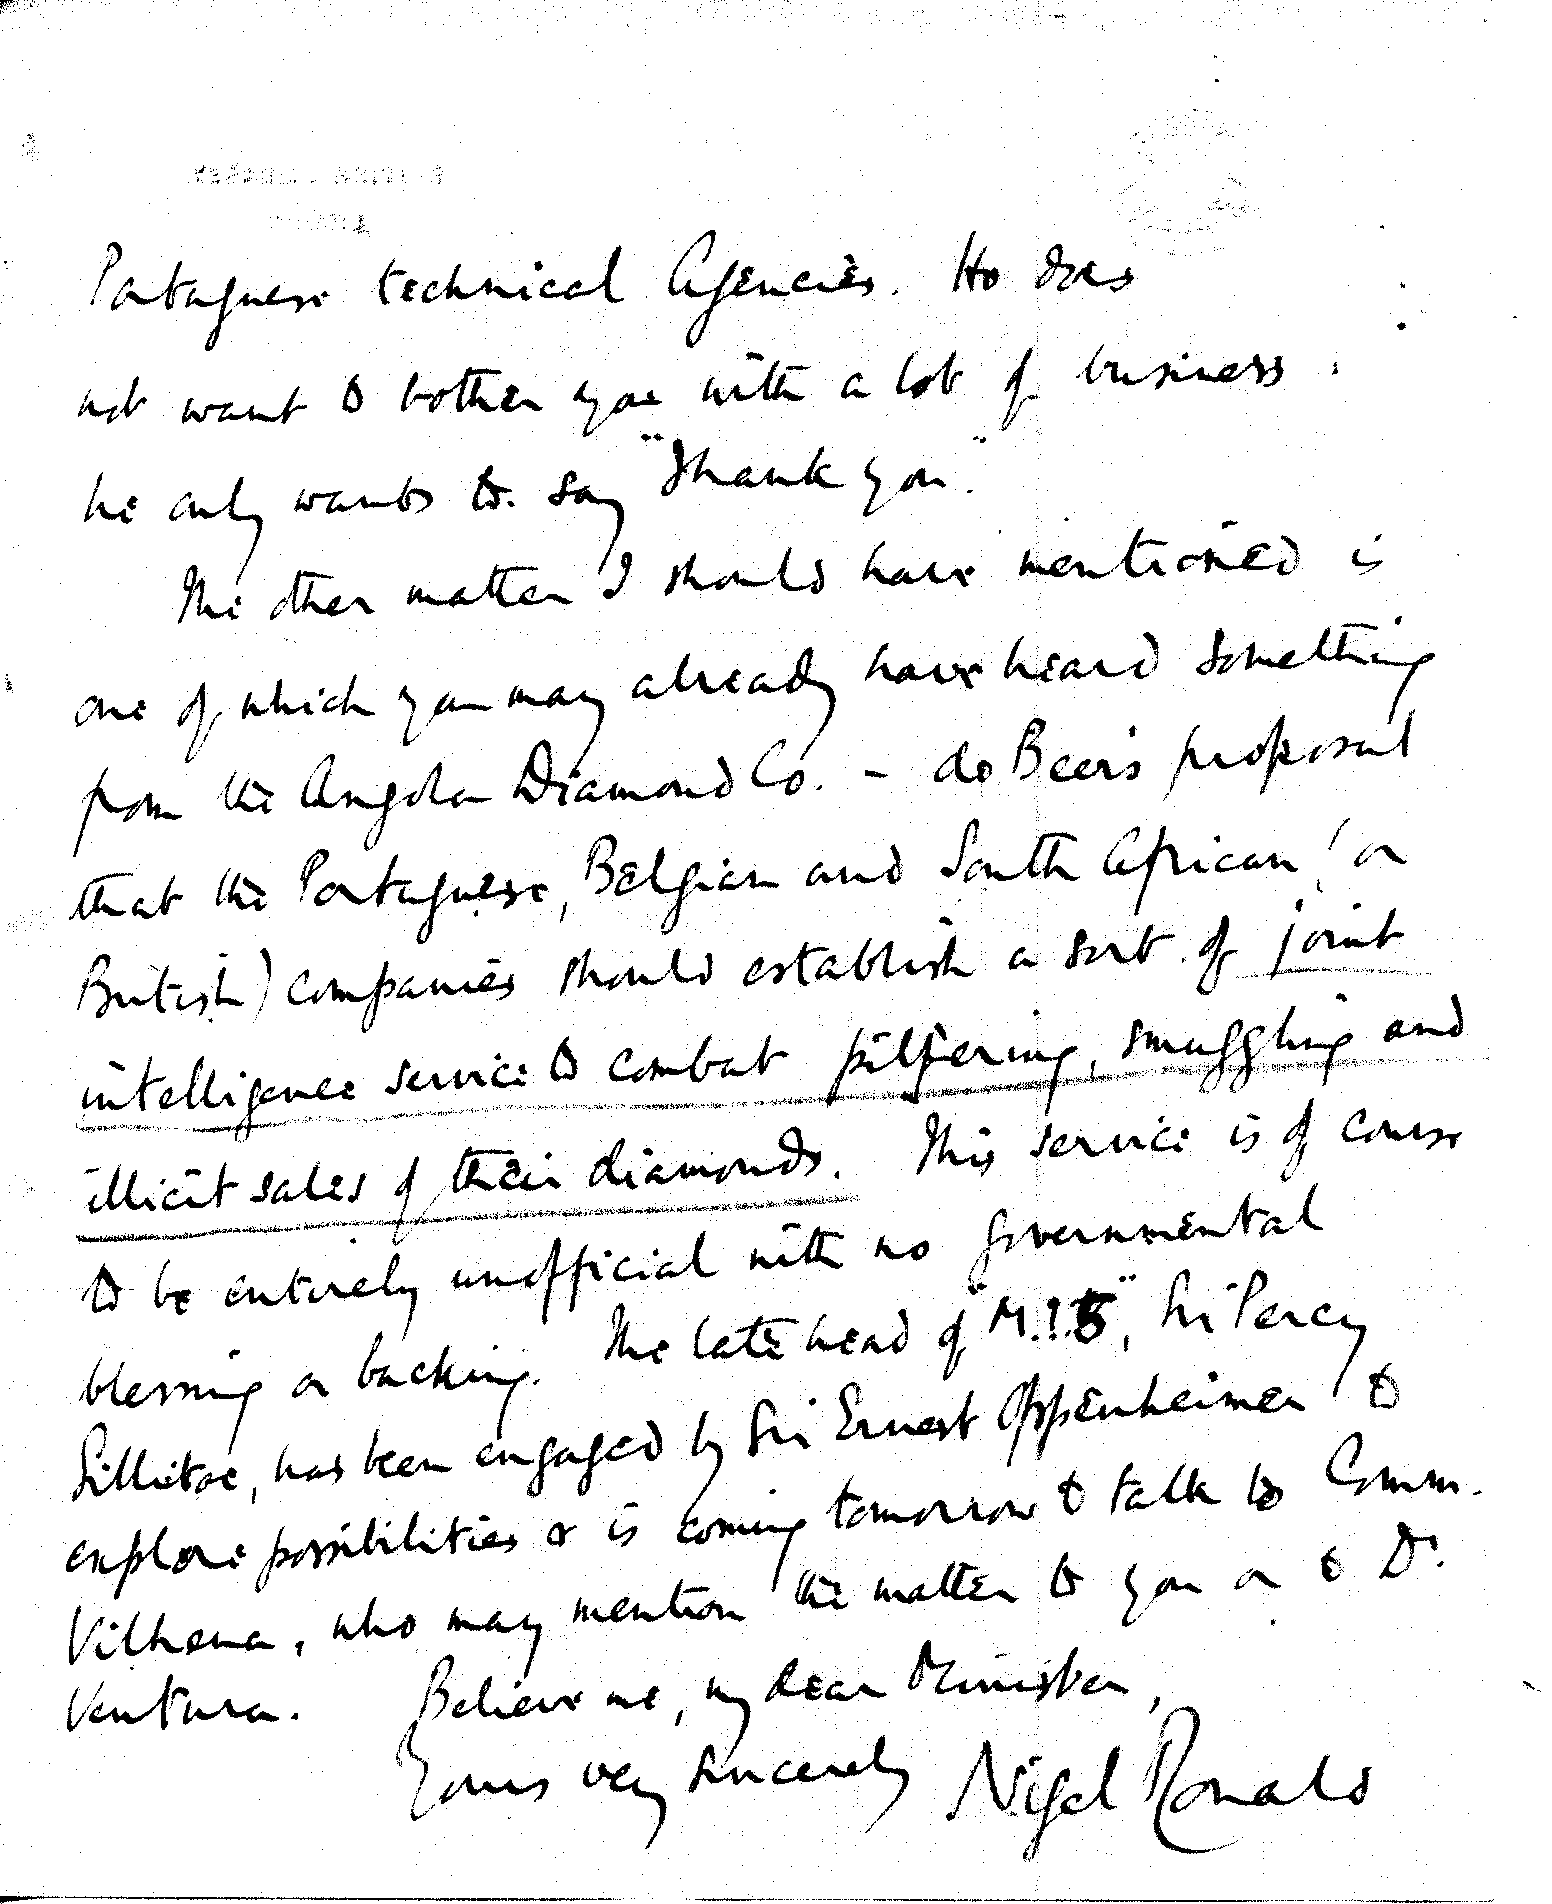 Portuguese technical Agencies. He does
not want to bother you with a lot of business:
he only wants to say "Thank you."
The other matter I should have mentioned is
one of which you may already have heard something
from the Angola Diamond Co. – de Beers proposal
that the Portuguese, Belgian and South African (or
British) companies should establish a sort of joint
intelligence service to combat pilfering, smuggling and
illicit sales of their diamonds. This service is of course
to be entirely unofficial with no governmental
blessing or backing. The late head of "M.I.5", Sir Percy
Sillitoe, has been engaged by Sir Ernest Oppenheimer to
explore possibilities & is coming tomorrow to talk to Comm.
Vilhena, who may mention the matter to you or to Dr.
Ventura. Believe me, my dear Minister,
Yours very sincerely Nigel Ronald